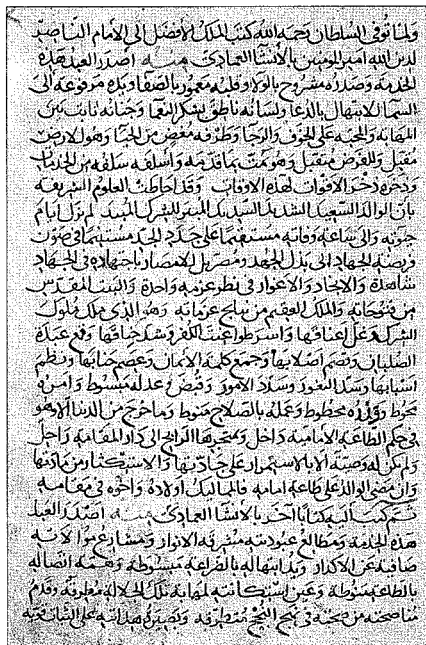 ولما توفى السلطان رحمه الله كتب الملك الافضل الى الامام الناصر
لدين الله امير المومنين بالانشا العمادى منه اصدر العبد هذه
الخدمة وصدره مشروح بالولا وقلبه معمور بالصفا ويده مرفوعة الى
السما للابتهال بالدعا ولسانه ناطق بشكر النعما وجنانه ثابت من
المهابة والمحبة على الخوف والرجا وطرفه مغض من الحيا وهو للارض
مقبل وللفرض متقبل وهو يمت بما قدمه واسلفه سلفه من الخدمات
وذخره ذخر الاقوات لهذه الاوقات وقد احاطت العلوم الشريفة
بان الوالد السعيد الشهيد الشديد السديد المبير للشرك المبيد لم يزل ايام
حيوته والى ساعة وفاته مستقيما على جدد الجد مستنيما فى صون
فريضة الجهاد الى بذل الجهد ومصر بل الامصار باجتهاده فى الجهاد
شاهدة والانجاد والاغوار فى نظر عزمه واحدة والبيت المقدس
من فتوحاته والملك العقيم من نتايج عزماته وهو الذى ملك ملوك
الشرك وغل اعناقها واسر طواغيت الكفر وشد خناقها وقمع عبدة
الصلبان وقصم اصلابها وجمع كلمة الايمان وعصم جنابها ونظم
اسبابها وسد الثغور وسدد الامور وقبض وعدله مبسوط وامره
محوط ووزره محطوط وعمله بالصلاح منوط وما خرج من الدنيا الا وهو
فى حكم الطاعة الامامية داخل وبمتجرها الرابح الى دار المقامة راحل
ولم تكن له وصية الا بالاستمرار على جادتها والاستكثار من مادتها
وان مضى الوالد على طاعة امامه فالمماليك اولاده واخوه فى مقامه
ثم كتب اليه كتابا اخر بالانشا العمادى منه اصدر العبد
هذه الخدمة ومطالع عبوديته مشرقة الانوار ومشارع موالاته
صافية عن الاكدار ويد ابتهاله بالضراعة مبسوطة وهمة اتصاله
بالطاعة منوطة وعين استكانته لمهابة تلك الجلالة مطرقة وقدم
مناصحته من صحته فى نهج النجح متطرقة وبصيرة هدايته على الثبات فيه